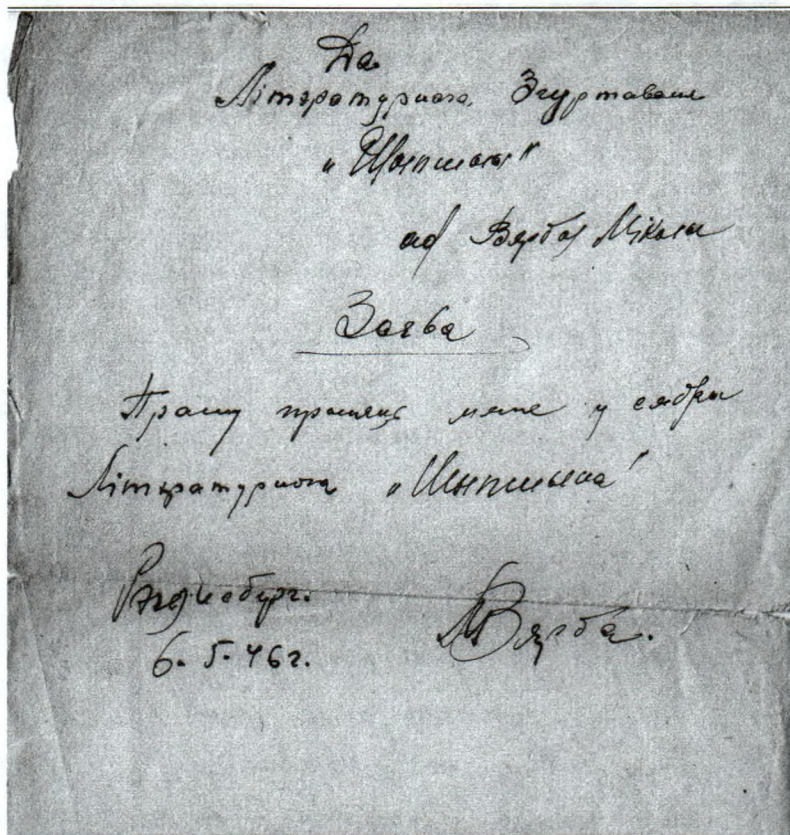 Да
Літэратурнага Згуртаваньня
„Шыпшына"
ад Вярбы Міколы
Заява
Прашу прыняць мяне у сябры
Літэратурнага „Шыпшына"
Рэгенсбург.
6. 5. 46 г.
МВярба.